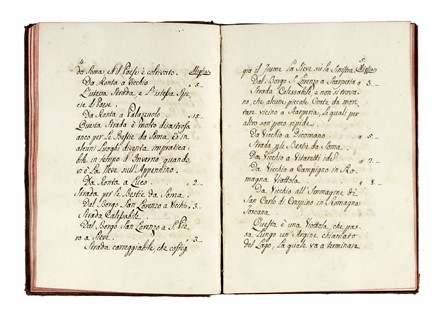 da Soma, e il Paese è coltivato. Miglia
Da Ronta a Vicchio " 5 –
L'istessa Strada, e l'istessa Spe-
cie di Paese.
Da Ronta a Palazuolo " 15 –
Questa Strada è molto disastrosa
anco per le Bestie da Soma, e in
alcuni Luoghi diventa impratica-
bile in tempo d'Inverno quando
vi è la Neve sull'Appennino.
Da Ronta a Luco " 2 –
Strada per le Bestie da Soma.
Dal Borgo San Lorenzo a Vicchio " 3 –
Strada Calessabile.
Dal Borgo San Lorenzo a S. Pie-
ro a Sieve " 3 –
Strada carreggiabile, che costeg-
gia il Fiume la Sieve sulla Sinistra. Miglia
Dal Borgo S. Lorenzo a Scarperia " 3 –
Strada Calessabile, e non si trova-
no, che alcune piccole Coste da mon-
tare vicino a Scarperia, le quali per
altro son poco ripide.
Da Vicchio a Dicomano " 5 –
Strada per le Bestie da Soma.
Da Vicchio a Vitereti idem " 2 –
Da Vicchio a Campigno in Ro-
magna Viottola " 8 –
Da Vicchio all'Immagine di
San Carlo il Crespino in Romagna
Toscana
Questa è una Viottola, che pas-
sa lungo un Argine chiamato
del Lago, la quale va a terminare